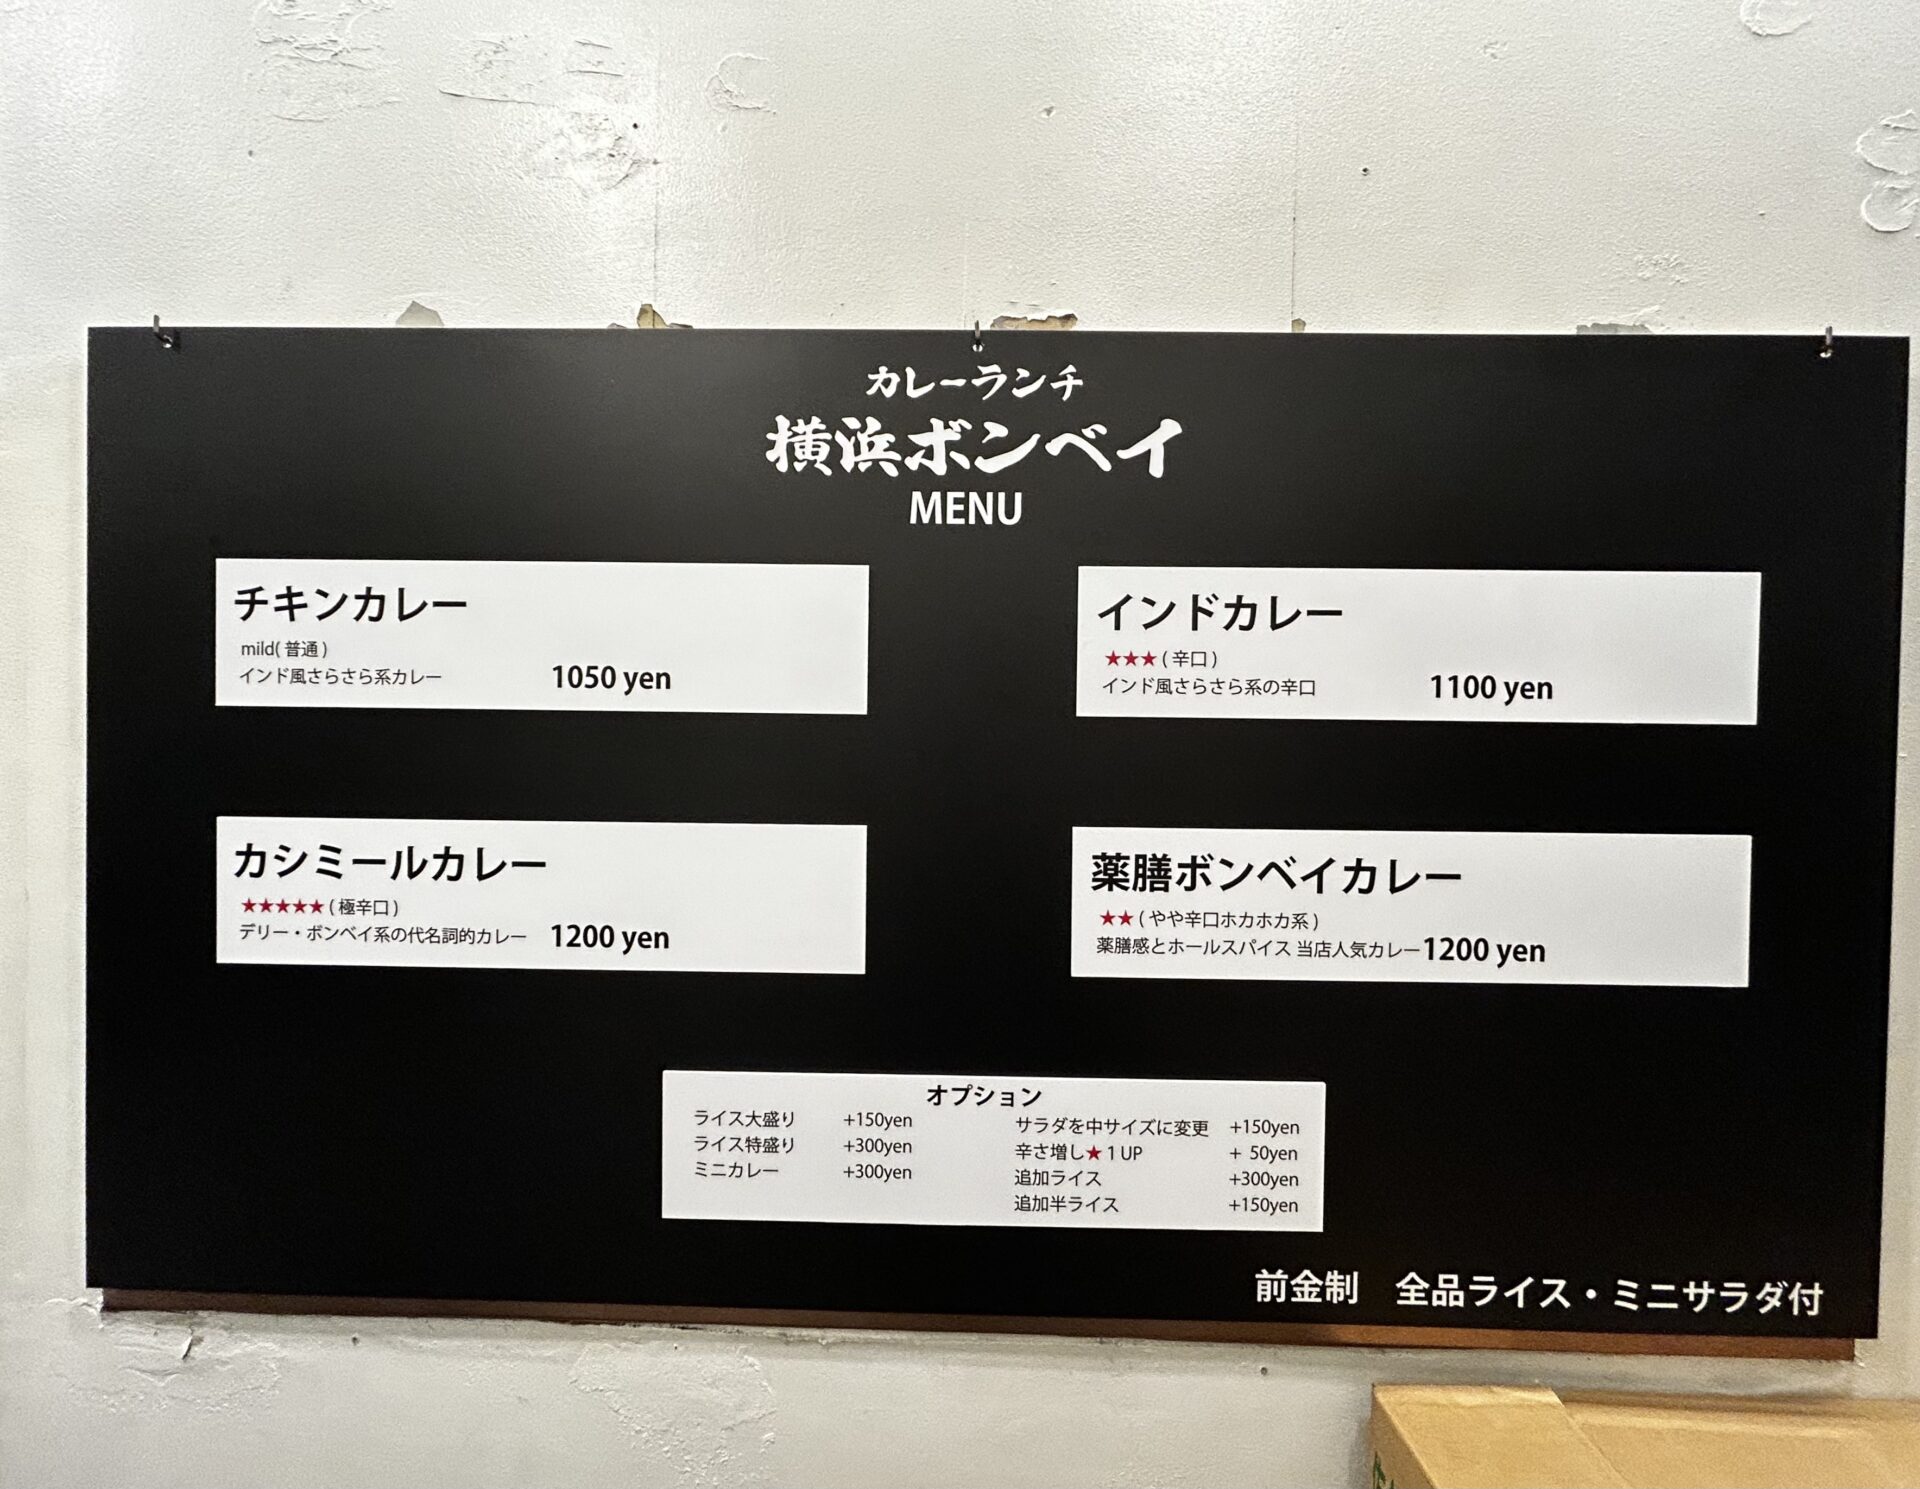 カレーランチ
横浜ボンベイ
MENU
チキンカレー
mild( 普通 )
インド風さらさら系カレー 1050 yen
インドカレー
★★★ ( 辛口 )
インド風さらさら系の辛口 1100 yen
カシミールカレー
★★★★★ ( 極辛口 )
デリー・ボンベイ系の代名詞的カレー 1200 yen
薬膳ボンベイカレー
★★ ( やや辛口ホカホカ系 )
薬膳感とホールスパイス 当店人気カレー 1200 yen
オプション
ライス大盛り +150yen
ライス特盛り +300yen
ミニカレー +300yen
サラダを中サイズに変更 +150yen
辛さ増し★ 1 UP + 50yen
追加ライス +300yen
追加半ライス +150yen
前金制 全品ライス・ミニサラダ付